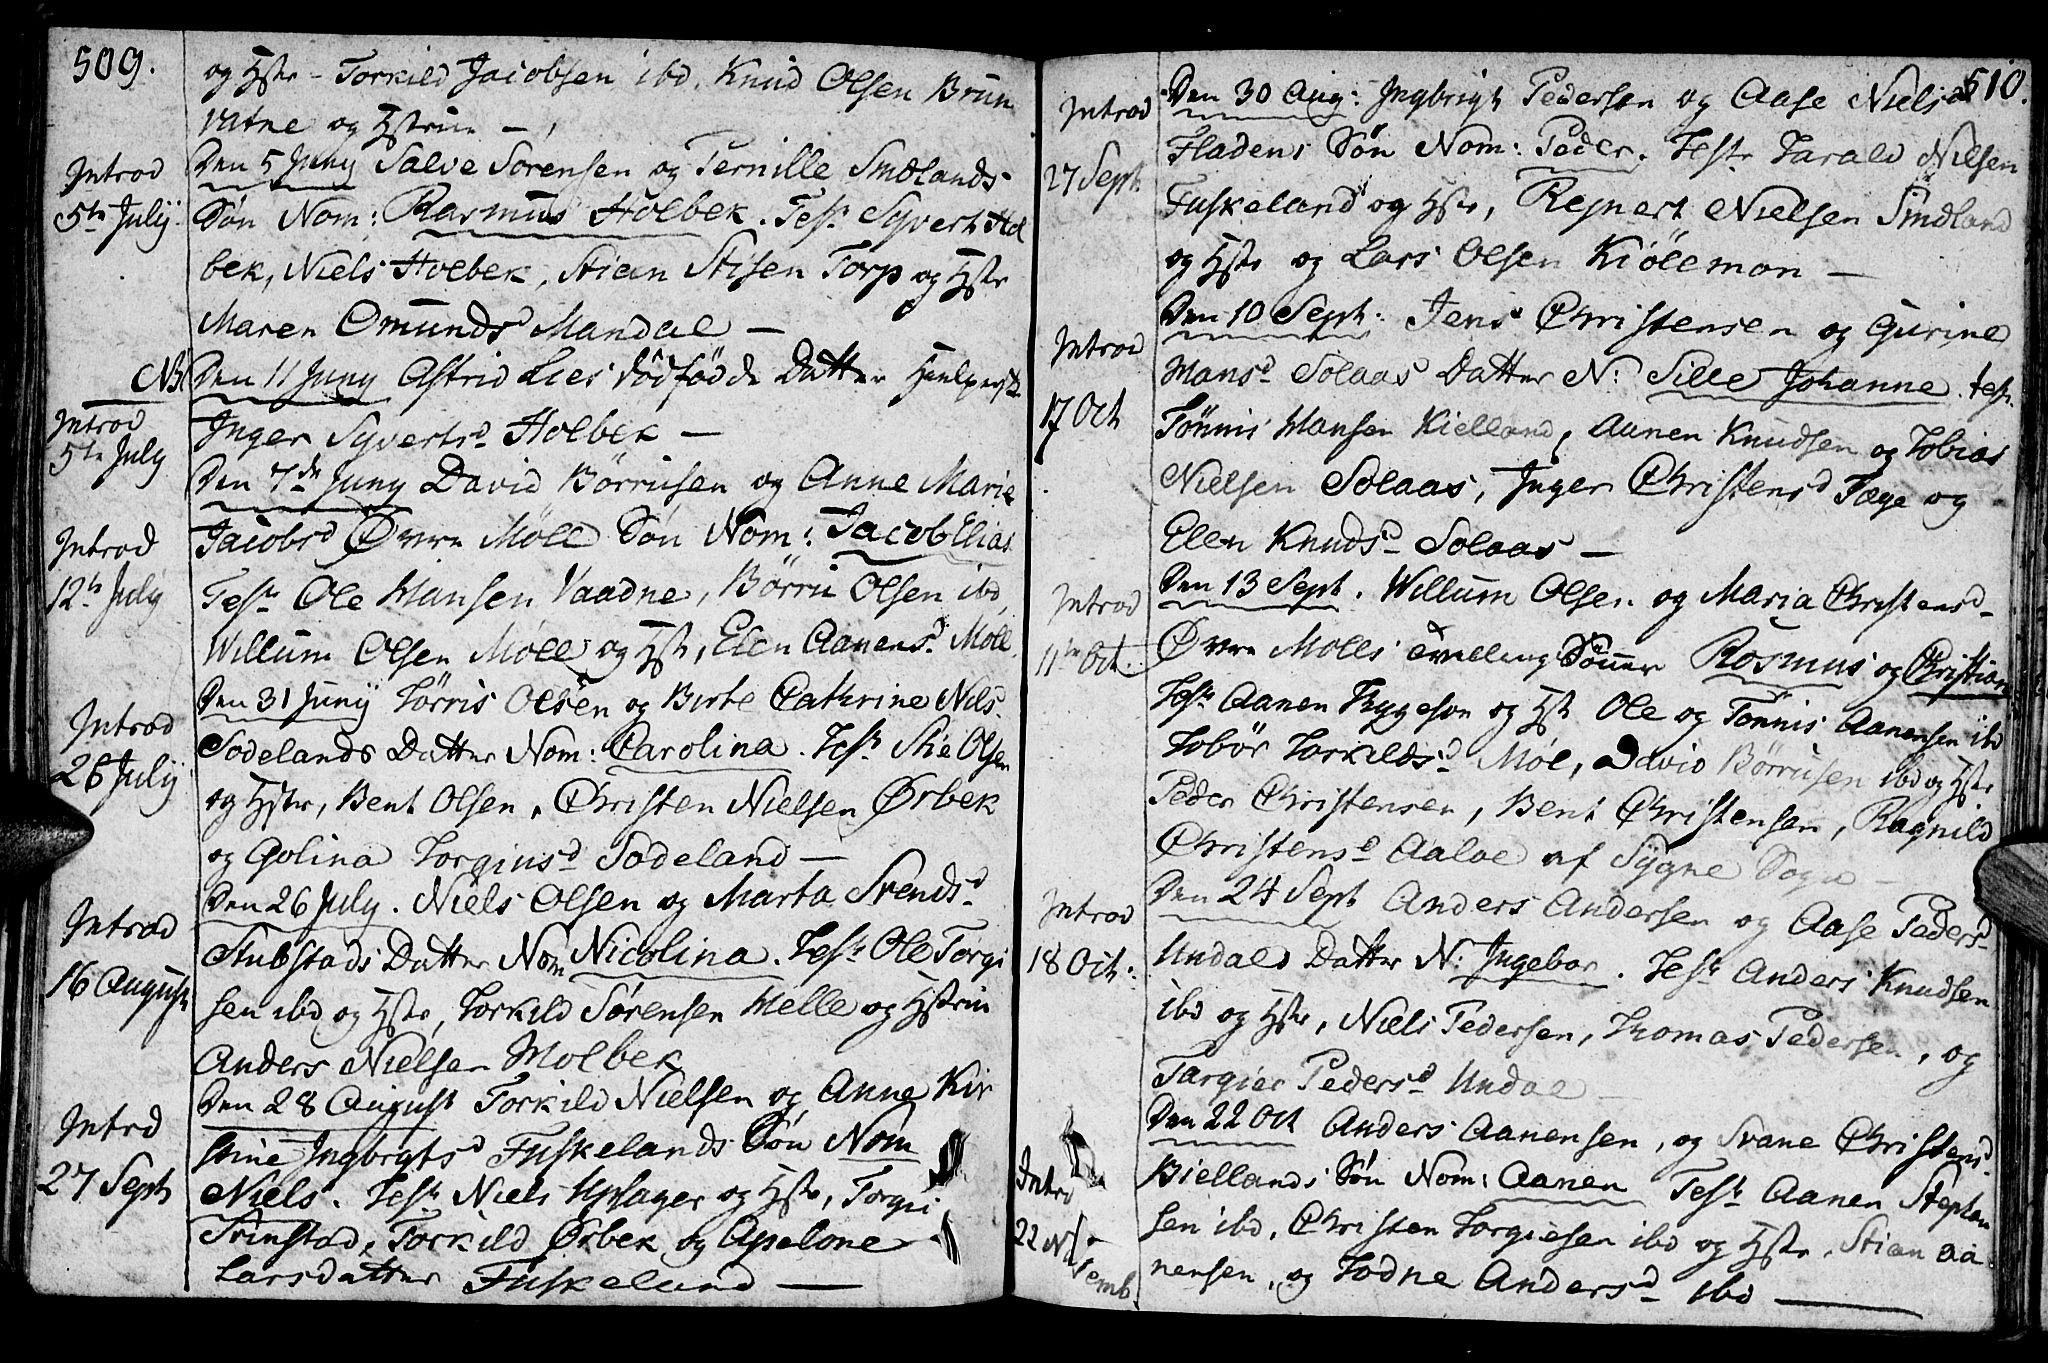 509.
og Hstr - Torkild Jacobsen ibd. Knud Olsen Brun
vatne og Hstrue —
Introd
5te July
Den 5 Juny Salve Sorensen og Pernille Smdlands
Søn Nom: Rasmus Holbek. Test Syvert Hol
bek, Niels Holbek, Stian Stisen Torp og Hstr
Maren Omunds Mandal —
NB
Den 11 Juny Astrid Lies dödfödde Datter
Inger Syvertsd Holbek —
Introd
5te July
Den 7de Juny David Börrusen og Anne Marie
Jacobsd Øvre Möll Søn Nom: Jacob Elias
Introd
12te July
Test Ole Hansen Vaadne, Börru Olsen ibd,
Willum Olsen Möll og Hstr, Elen Aanensd Möll
Den 31 Juny Törris Olsen og Birte Cathrine Nils
Introd
26 July
Sodelands Datter Nom: Carolina. Test Stie Olsen
og Hstr, Bent Olsen, Christen Nielsen Ørbek
og Golina Torgiusd Sodeland —
Den 26 July. Niels Olsen og Marta Svendsd
Introd
16 August
Stubstads Datter Nom Nicolina. Test Ole Torgi
sen ibd og Hstr, Torkild Sørensen Helle og Hstrue
Anders Nielsen Molbek
Den 28 August Torkild Nielsen og Anne Kir
Introd
27 Sept
stine Ingbrgtsd Fuskelands Søn Nom
Niels. Test Niels Upsager og Hstr, Torgui
Trinstad, Torkild Ørbek og Apelone
Larsdatter Fuskeland —
510.
Introd
27 Sept
Den 30 Aug: Ingbrigt Pedersen og Aase Niels
Fladens Søn Nom: Peder. Test Tarald Nilsen
Fuskeland og Hstr, Rejnert Nielsen Smdland
og Hstr og Lars Olsen Kiölemon —
Introd
17 Oct
Den 10 Sept: Jens Christensen og Gurine
Hansd Solaas Datter N: Sille Johanne. test
Tönnis Hansen Kielland, Aanen Knudsen og Tobias
Nielsen Solaas, Inger Christensd Fæge og
Elen Knudsd Solaas —
Introd
11te Oct.
Den 13 Sept. Willum Olsen og Maria Christensd
Øvre Molls Tvilling Sönner Rasmus og Christian
Test Aanen Trygeson og Hstr Ole og Tönnis Aanensen ibd
Tobör Torkildsd Möl, David Börrusen ibd og Hstr
Peder Christensen, Bent Christensen, Ragnild
Christensd Aaloe af Sygne Sogn —
Introd
18 Oct:
Den 24 Sept Anders Andersen og Aase Pedersd
Undals Datter N: Ingebor. Test Anders Knudsen
ibd og Hstr, Niels Pedersen, Thomas Pedersen, og
Targier Pedersd Undal
Introd
22 Novemb
Den 22 Oct Anders Aanensen, og Svane Christensd
Biellands Søn Nom: Aanen Test Aanen Stephen
sen ibd, Christen Torgiesen ibd og Hstr, Stian Aa
nensen, og Todne Andersd ibd —